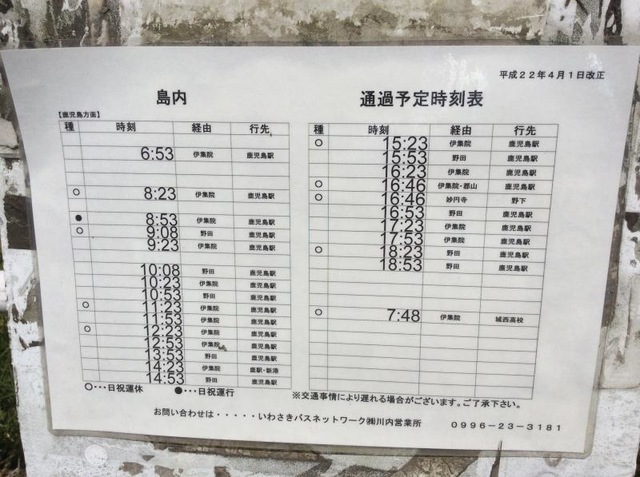 平成22年4月1日改正
島内 通過予定時刻表
【鹿児島方面】
種 時刻 経由 行先
6:53 伊集院 鹿児島駅
○ 8:23 伊集院 鹿児島駅
● 8:53 伊集院 鹿児島駅
○ 9:08 野田 鹿児島駅
9:23 伊集院 鹿児島駅
10:08 野田 鹿児島駅
10:23 伊集院 鹿児島駅
10:53 野田 鹿児島駅
○ 11:23 伊集院 鹿児島駅
11:53 伊集院 鹿児島駅
○ 12:23 伊集院 鹿児島駅
12:53 伊集院 鹿児島駅
野田 鹿児島駅
伊集院 鹿駅・新港
14:53 野田 鹿児島駅
種 時刻 経由 行先
○ 15:23 伊集院 鹿児島駅
15:53 野田 鹿児島駅
16:23 伊集院 鹿児島駅
○ 16:46 伊集院・郡山 鹿児島駅
○ 16:46 妙円寺 野下
16:53 野田 鹿児島駅
17:23 伊集院 鹿児島駅
17:53 伊集院 鹿児島駅
○ 18:23 野田 鹿児島駅
18:53 野田 鹿児島駅
○ 7:48 伊集院 城西高校
○・・・日祝運休 ●・・・日祝運行
※交通事情により遅れる場合がございます。ご了承下さい。
お問い合わせは・・・・・いわさきバスネットワーク㈱川内営業所 0996-23-3181